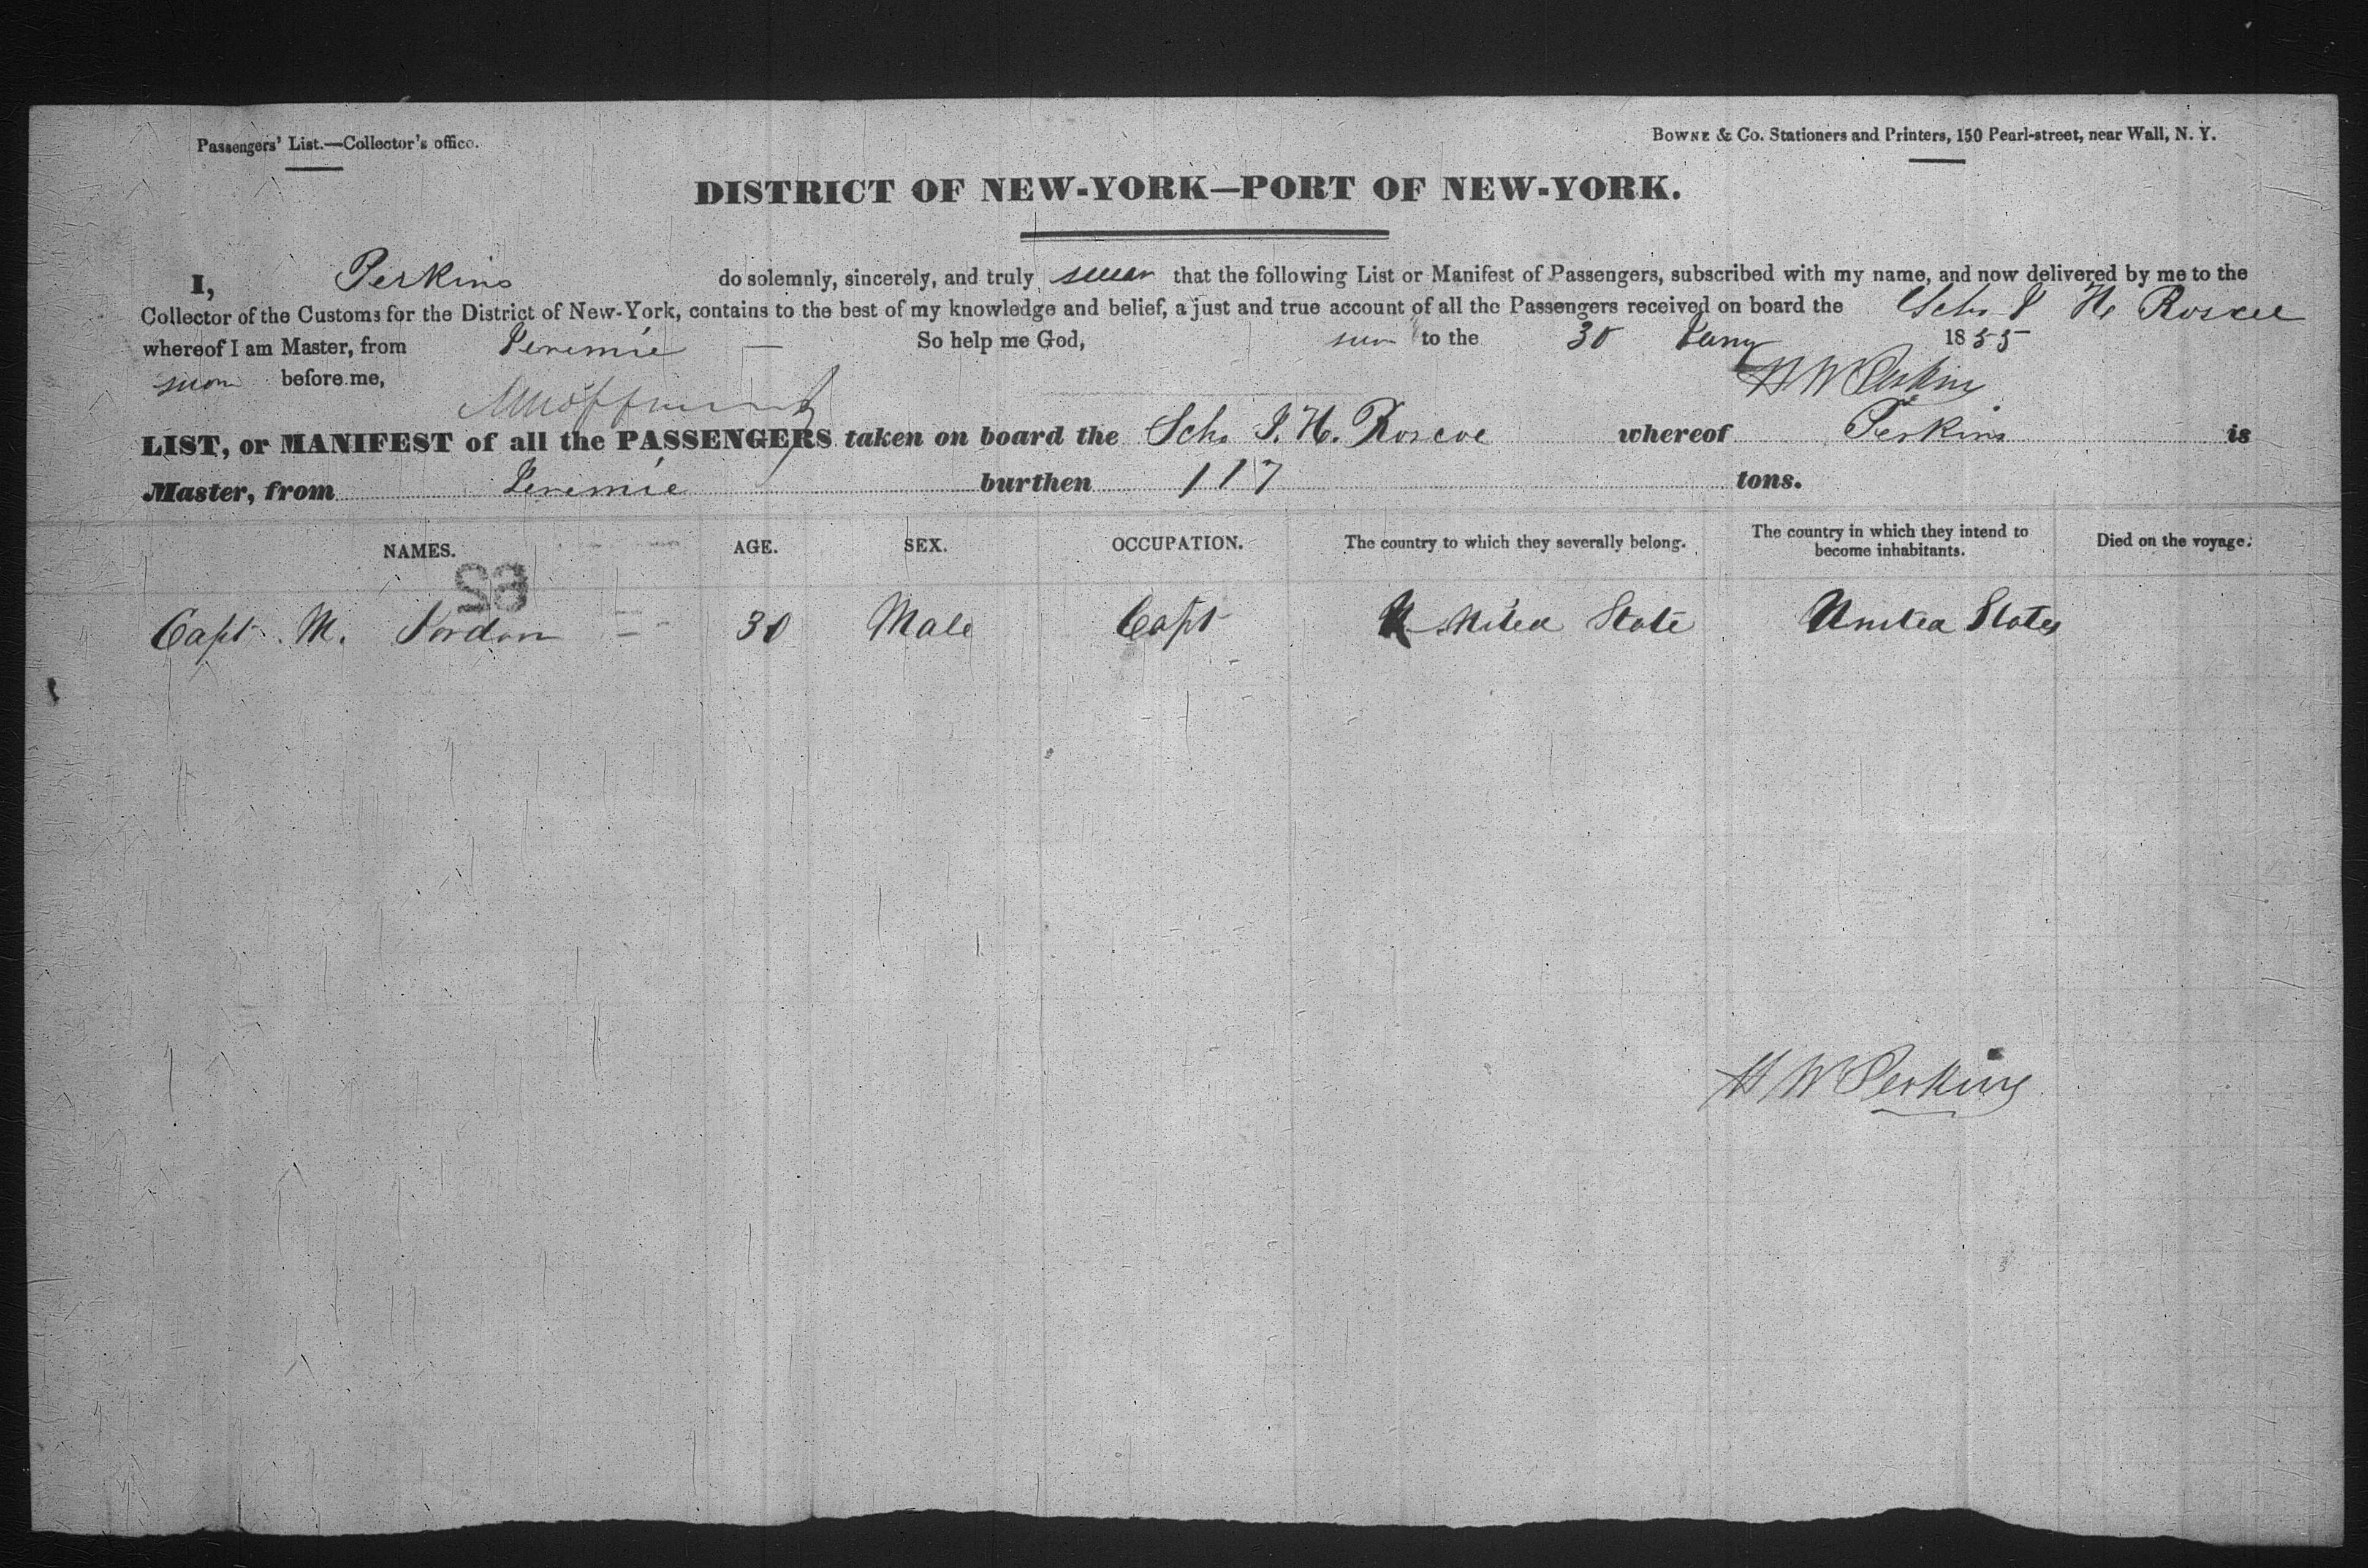 Passengers' List.—Collector's office.
BOWNE & Co. Stationers and Printers, 150 Pearl-street, near Wall, N. Y.
DISTRICT OF NEW-YORK—PORT OF NEW-YORK.
I, Perkins do solemnly, sincerely, and truly swear that the following List or Manifest of Passengers, subscribed with my name, and now delivered by me to the
Collector of the Customs for the District of New-York, contains to the best of my knowledge and belief, a just and true account of all the Passengers received on board the Schr J H Roscoe
whereof I am Master, from Jeremie — So help me God, to the 30 Jany 1855
sworn before me, H W Perkins
LIST, or MANIFEST of all the PASSENGERS taken on board the Schr J. H. Roscoe whereof Perkins is
Master, from Jeremie burthen 117 tons.
NAMES. AGE. SEX. OCCUPATION. The country to which they severally belong. The country in which they intend to become inhabitants. Died on the voyage.
Capt. M. Jordon 30 Male Capt United State United States
H W Perkins